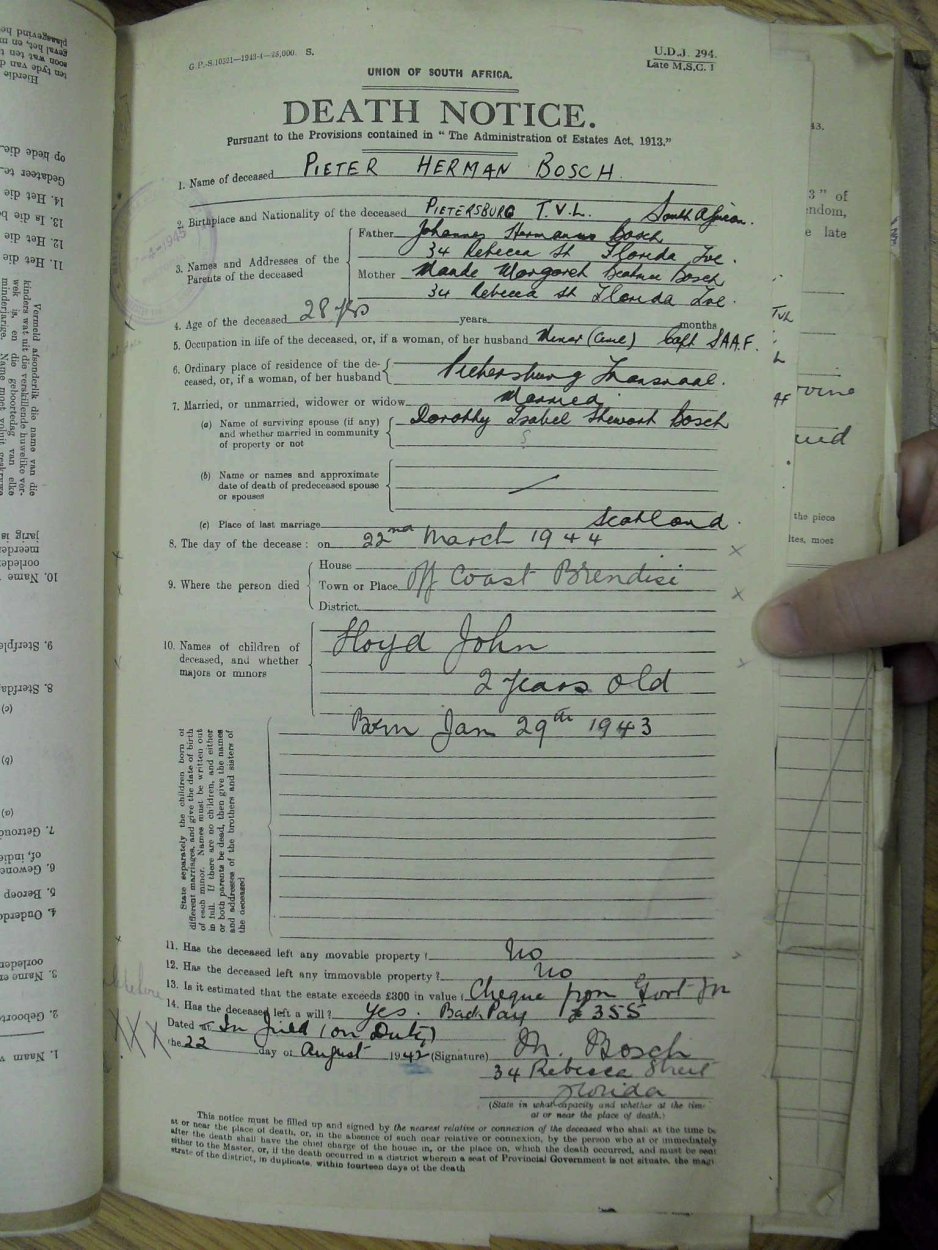 G.P.-S.10321—1943-4—25,000. S.
U.D.J. 294.
Late M.S.C. 1
UNION OF SOUTH AFRICA.
DEATH NOTICE.
Pursuant to the Provisions contained in "The Administration of Estates Act, 1913."
1. Name of deceased PIETER HERMAN BOSCH.
2. Birthplace and Nationality of the deceased PIETERSBURG T.V.L. South African.
3. Names and Addresses of the Parents of the deceased
Father Johannes Hermanus Bosch
34 Rebecca St Florida Tve.
Mother Maude Margaret Beatrice Bosch
34 Rebecca St Florida Tve.
4. Age of the deceased 28 yrs years months
5. Occupation in life of the deceased, or, if a woman, of her husband Miner Capt SAAF.
6. Ordinary place of residence of the de-
ceased, or, if a woman, of her husband Pietersburg Transvaal.
7. Married, or unmarried, widower or widow Married
(a) Name of surviving spouse (if any)
and whether married in community
of property or not
Dorothy Isabel Stewart Bosch
(b) Name or names and approximate
date of death of predeceased spouse
or spouses
(c) Place of last marriage Scotland.
8. The day of the decease: on 22nd March 1944
9. Where the person died
House
Town or Place Off Coast Brendisi
District
10. Names of children of
deceased, and whether
majors or minors
Lloyd John
2 years old
Born Jan 29th 1943
State separately the children born of
different marriages, and give the date of birth
of each minor. Names must be written out
in full. If there are no children, and either
or both parents be dead, then give the names
and addresses of the brothers and sisters of
the deceased
11. Has the deceased left any movable property? No
12. Has the deceased left any immovable property? No
13. Is it estimated that the estate exceeds £300 in value? Cheque from Govt for
14. Has the deceased left a will? Yes. Back Pay £355
Dated at In field (on Duty)
the 22 day of August 1942 (Signature) M. Bosch
34 Rebecca Street
Florida
(State in what capacity and whether at the time
at or near the place of death.)
This notice must be filled up and signed by the nearest relative or connexion of the deceased who shall at the time be
at or near the place of death, or, in the absence of such near relative or connexion, by the person who at or immediately
after the death shall have the chief charge of the house in, or the place on, which the death occurred, and must be sent
either to the Master, or, if the death occurred in a district wherein a seat of Provincial Government is not situate, the magi
strate of the district, in duplicate, within fourteen days of the death